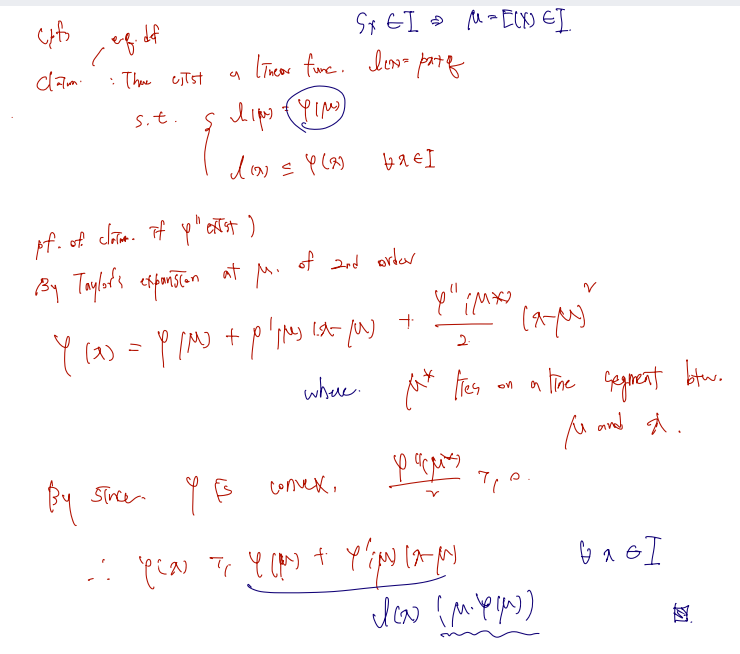 S_X ∈ I ⇒ μ = E(X) ∈ I.
(pf)
claim. : There exist a linear func. l(x) = px+q
s.t. { l(μ) = φ(μ)
l(x) ≤ φ(x) ∀x∈I
pf. of claim. if φ'' exist)
By Taylor's expansion at μ. of 2nd order
φ(x) = φ(μ) + φ'(μ)(x-μ) + φ''(μ*)/2 (x-μ)²
where. μ* lies on a line segment btw.
μ and x.
By since φ is convex, φ''(μ*)/2 ≥ 0.
∴ φ(x) ≥ φ(μ) + φ'(μ)(x-μ) ∀x∈I
l(x) (μ. φ(μ))